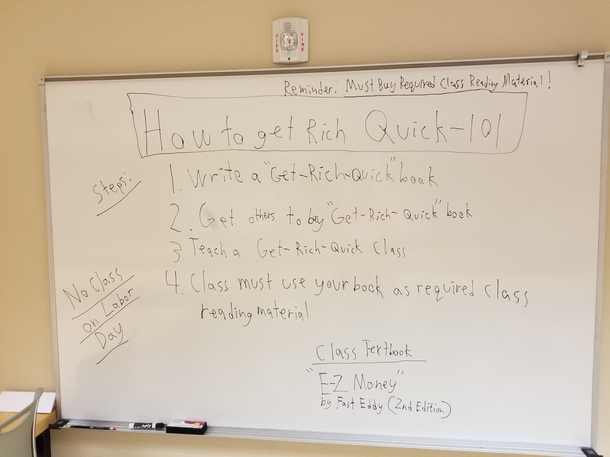 FIRE FIRE
Reminder: Must Buy Required Class Reading Material!
How to get Rich Quick-101
Steps:
1. Write a "Get-Rich-Quick" book
2. Get others to buy "Get-Rich-Quick" book
3 Teach a Get-Rich-Quick Class
4. Class must use your book as required class
reading material
No Class
on Labor
Day
Class Textbook
"E-Z Money"
by Fast Eddy (2nd Edition)